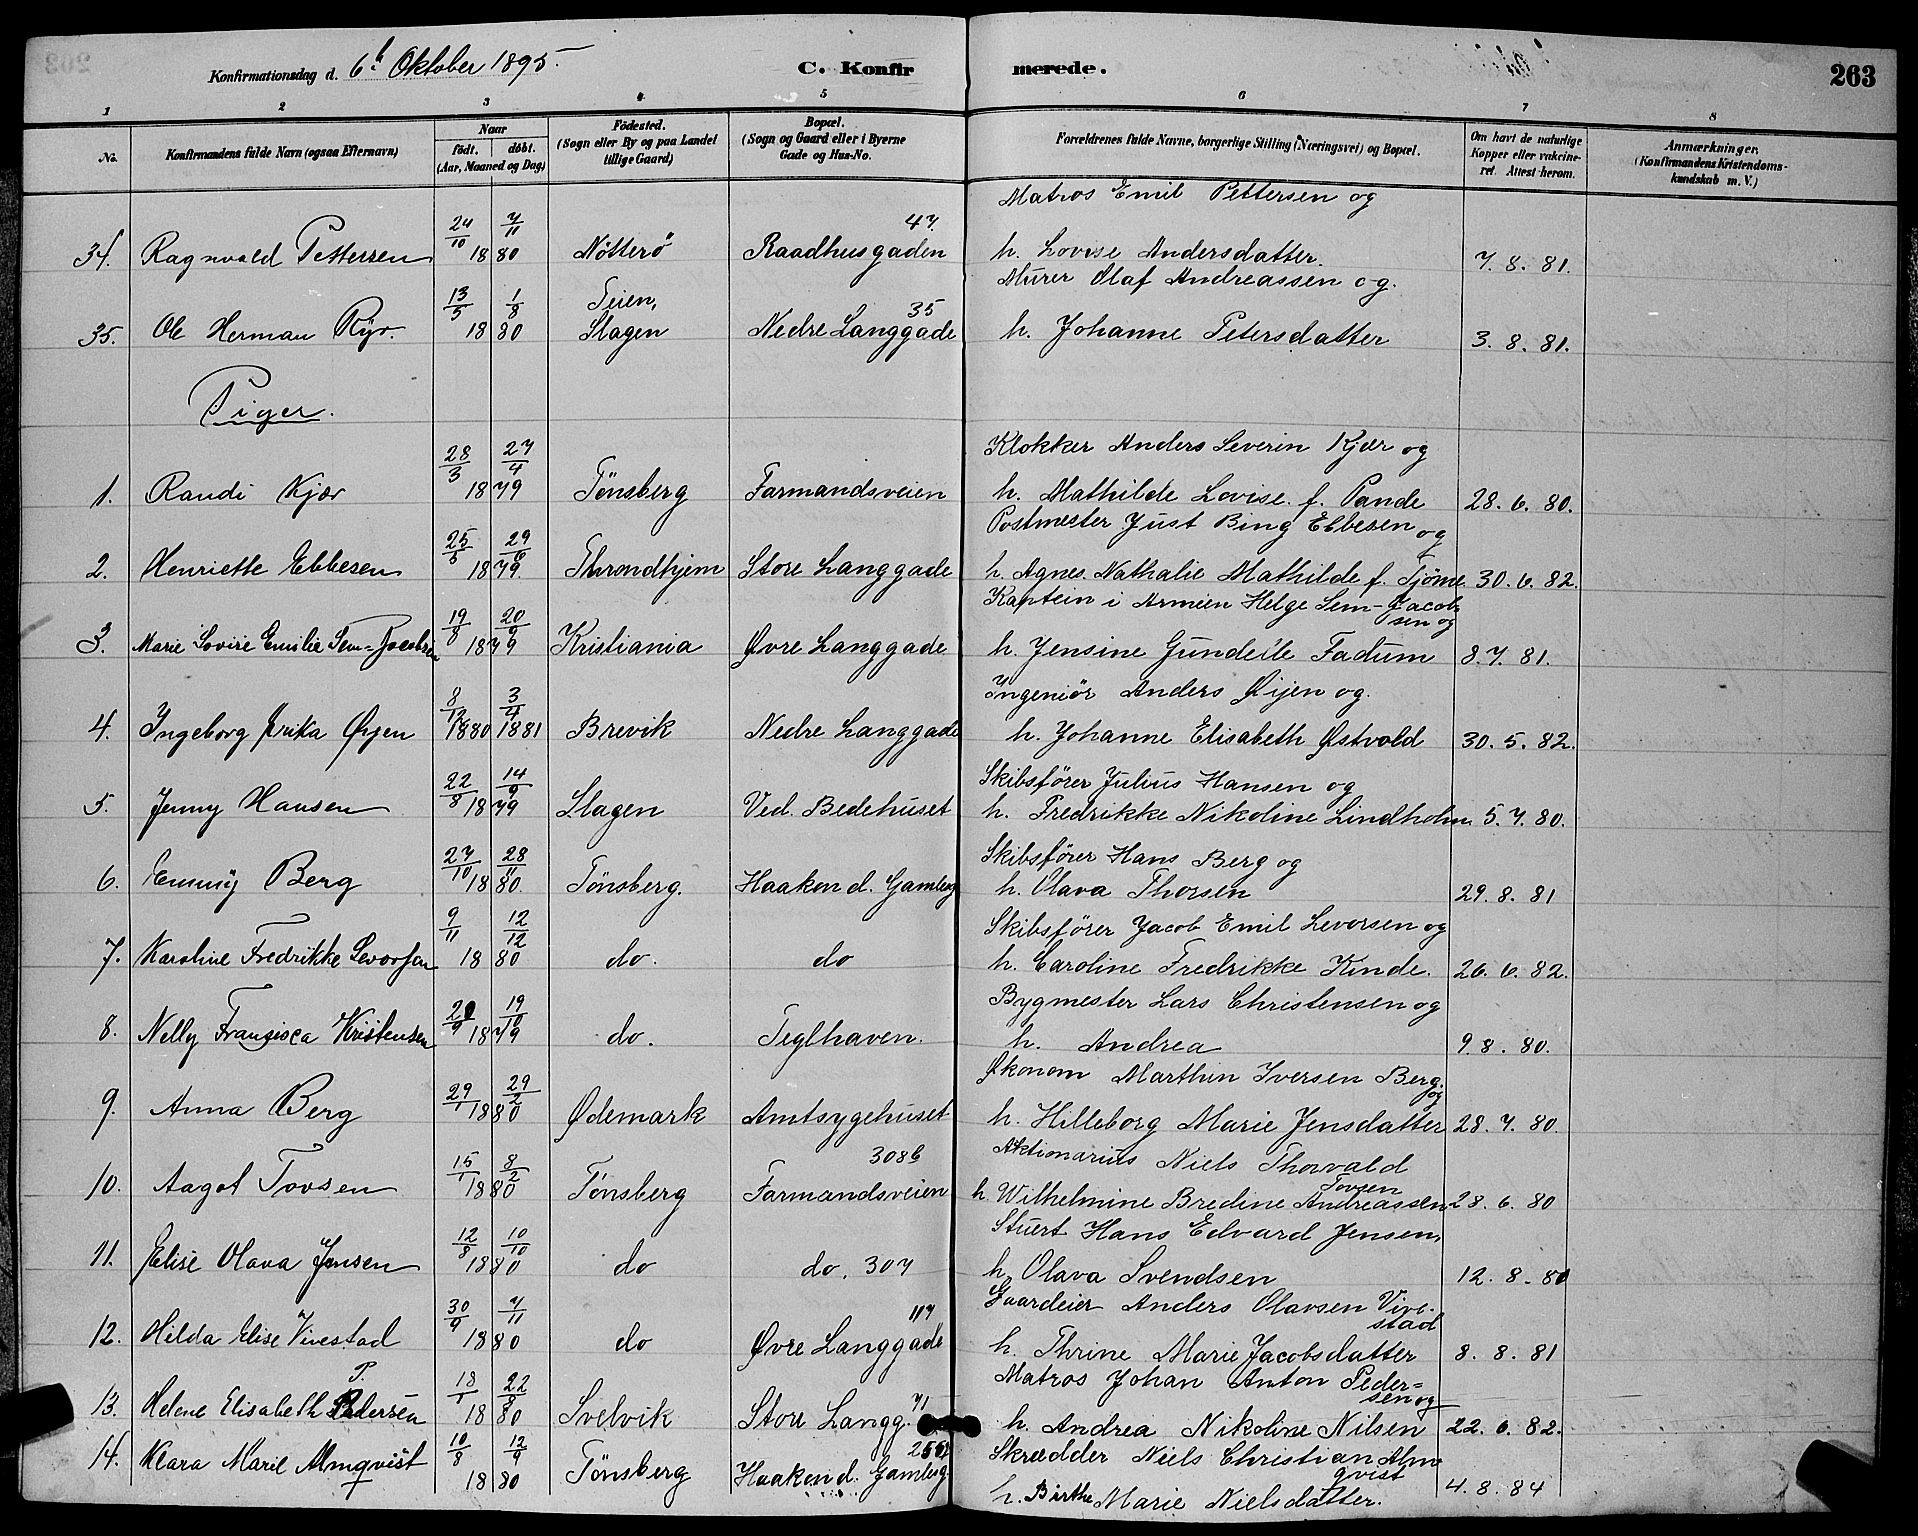 Konfirmationsdag d. 6t Oktober 1895. C. Konfirmerede. 263
1 2 3 4 5 6 7 8
No. Konfirmandens fulde Navn (ogsaa Efternavn) Naar født. døbt. (Aar, Maaned og Dag) Fødested. (Sogn eller By og paa Landet tillige Gaard) Bopæl. (Sogn og Gaard eller i Byerne Gade og Hus-No. Forældrenes fulde Navne, borgerlige Stilling (Næringsvei) og Bopæl. Om havt de naturlige Kopper eller vakcineret. Attest herom. Anmærkninger. (Konfirmandens Kristendomskundskab m. V.)
24/10 7/11 47. Matros Emil Pettersen og
34. Ragnvald Pettersen 18 80 Nötterö Raadhusgaden h. Lovise Andersdatter. 7. 8. 81.
13/5 1/8 Teien, 35 Murer Olaf Andreassen og.
35. Ole Herman Ryr. 18 80 Slagen Nedre Langgade h. Johanne Petersdatter 3. 8. 81.
Piger.
28/3 27/4 Klokker Anders Severin Kjær og
1. Randi Kjær 18 79 Tønsberg Farmandsveien h. Mathilde Lovise. f. Pande 28. 6. 80.
25/5 29/6 Postmester Just Bing Ebbesen og
2. Henriette Ebbesen 18 79. Throndhjem Store Langgade h. Agnes. Nathalie Mathilde f. Tjöme 30. 6. 82.
19/8 20/9 Kaptein i Armeen Helge Sem-Jacobsen og
3. Marie Lovise Emilie Sem-Jacobsen 18 79 Kristiania Øvre Langgade h. Jensine Gundelle Fadum 8. 7. 81.
8/12 3/4 Ingeniör Anders Øijen og.
4. Ingeborg Erika Øyen 1880 1881 Brevik Nedre Langgade h. Johanne Elisabeth Østvold 30. 5. 82.
22/8 14/9 Skibsförer Julius Hansen og
5. Jenny Hansen 18 79 Slagen Ved. Bedehuset h. Fredrikke Nikoline Lindholm 5. 7. 80.
27/10 28/11 Skibsförer Hans Berg og
6. Emmy Berg 18 80. Tønsberg. Haakon d. Gamleg h. Olava Thorsen 29. 8. 81
9/11 12/12 Skibsförer Jacob Emil Levorsen og
7. Karoline Fredrikke Levorsen 18 80 do. do h. Caroline Fredrikke Kinde. 26. 6. 82.
19/10 Bygmester Lars Christensen og
8. Nelly Franzisca Kristensen 18 79 do. Teglhaven. h. Andrea 9. 8. 80.
29/1 29/2 Økonom Marthin Iversen Berg. og
9. Anna Berg 1880 Ødemark Amtsygehuset h. Hilleborg Marie Jensdatter 28. 7. 80.
15/1 8/2 308b Aktionarius Niels Thorvald Tovsen
10. Aagot Tovsen 1880 Tønsberg Farmandsveien h. Wilhelmine Bredine Andreassen 28. 6. 80
12/8 10/10 Stuert Hans Edvard Jensen,
11. Elise Olava Jensen 1880 do do. 307 h. Olava Svendsen 12. 8. 80
30/9 7/11 117 Gaardeier Anders Olavsen Vivestad
12. Hilda Elise Vivestad 1880 do Øvre Langgade h. Thrine Marie Jacobsdatter 8. 8. 81
P. 18/1 22/8 71 Matros Johan Anton Pedersen og
13. Helene Elisabeth Pedersen 18 80 Svelvik Store Langg. h. Andrea Nikoline Nilsen 22. 6. 82.
10/8 12/9 Skrædder Niels Christian Almqvist
14. Klara Marie Almqvist 18 80 Tønsberg Haakon d. Gamleg. h. Birthe Marie Nielsdatter. 4. 8. 84